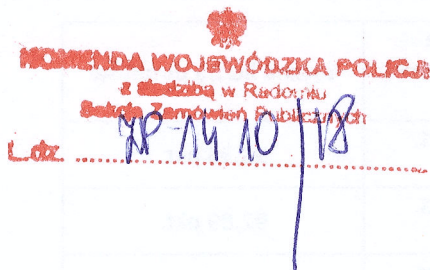 KOMENDA WOJEWÓDZKA POLICJI
z siedzibą w Radomiu
Sekcja Zamówień Publicznych
L.dz. ZP 1410/18